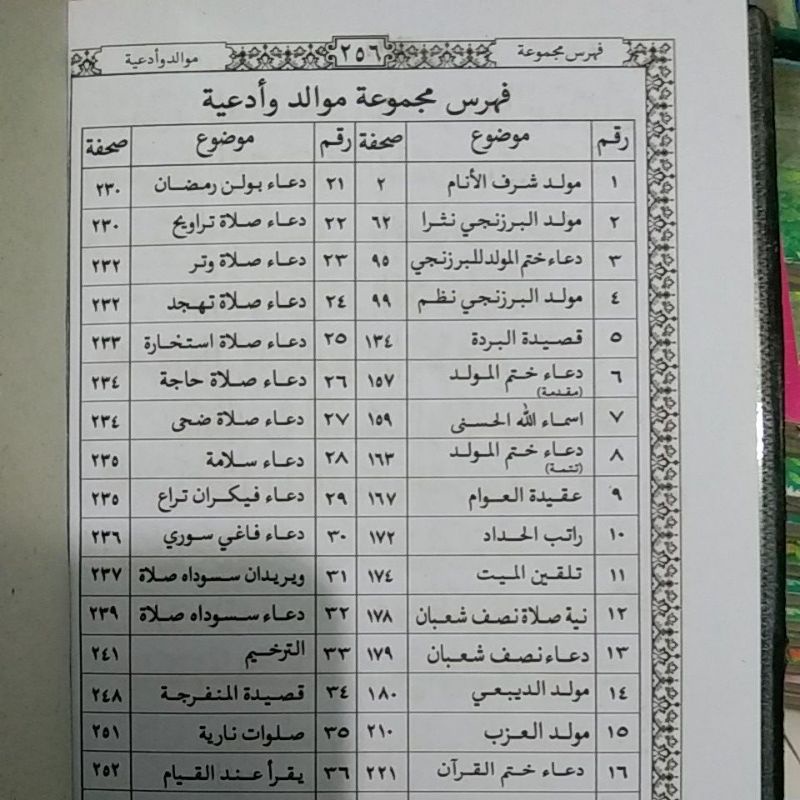 فهرس مجموعة ٢٥٦ موالد وأدعية
فهرس مجموعة موالد وأدعية
رقم موضوع صحفة رقم موضوع صحفة
١ مولد شرف الأنام ٢ ٢١ دعاء بولن رمضان ٢٣٠
٢ مولد البرزنجي نثرا ٦٢ ٢٢ دعاء صلاة تراويح ٢٣٠
٣ دعاء ختم المولد للبرزنجي ٩٥ ٢٣ دعاء صلاة وتر ٢٣٢
٤ مولد البرزنجي نظم ٩٩ ٢٤ دعاء صلاة تهجد ٢٣٢
٥ قصيدة البردة ١٣٤ ٢٥ دعاء صلاة استخارة ٢٣٣
٦ دعاء ختم المولد (مقدمة) ١٥٧ ٢٦ دعاء صلاة حاجة ٢٣٤
٧ اسماء الله الحسنى ١٥٩ ٢٧ دعاء صلاة ضحى ٢٣٤
٨ دعاء ختم المولد (تتمة) ١٦٣ ٢٨ دعاء سلامة ٢٣٥
٩ عقيدة العوام ١٦٧ ٢٩ دعاء فيكران تراع ٢٣٥
١٠ راتب الحداد ١٧٢ ٣٠ دعاء فاغي سوري ٢٣٦
١١ تلقين الميت ١٧٤ ٣١ ويريدان سسوداه صلاة ٢٣٧
١٢ نية صلاة نصف شعبان ١٧٨ ٣٢ دعاء سسوداه صلاة ٢٣٩
١٣ دعاء نصف شعبان ١٧٩ ٣٣ الترخيم ٢٤١
١٤ مولد الديبعي ١٨٠ ٣٤ قصيدة المنفرجة ٢٤٨
١٥ مولد العزب ٢١٠ ٣٥ صلوات نارية ٢٥١
١٦ دعاء ختم القرآن ٢٢١ ٣٦ يقرأ عند القيام ٢٥٢